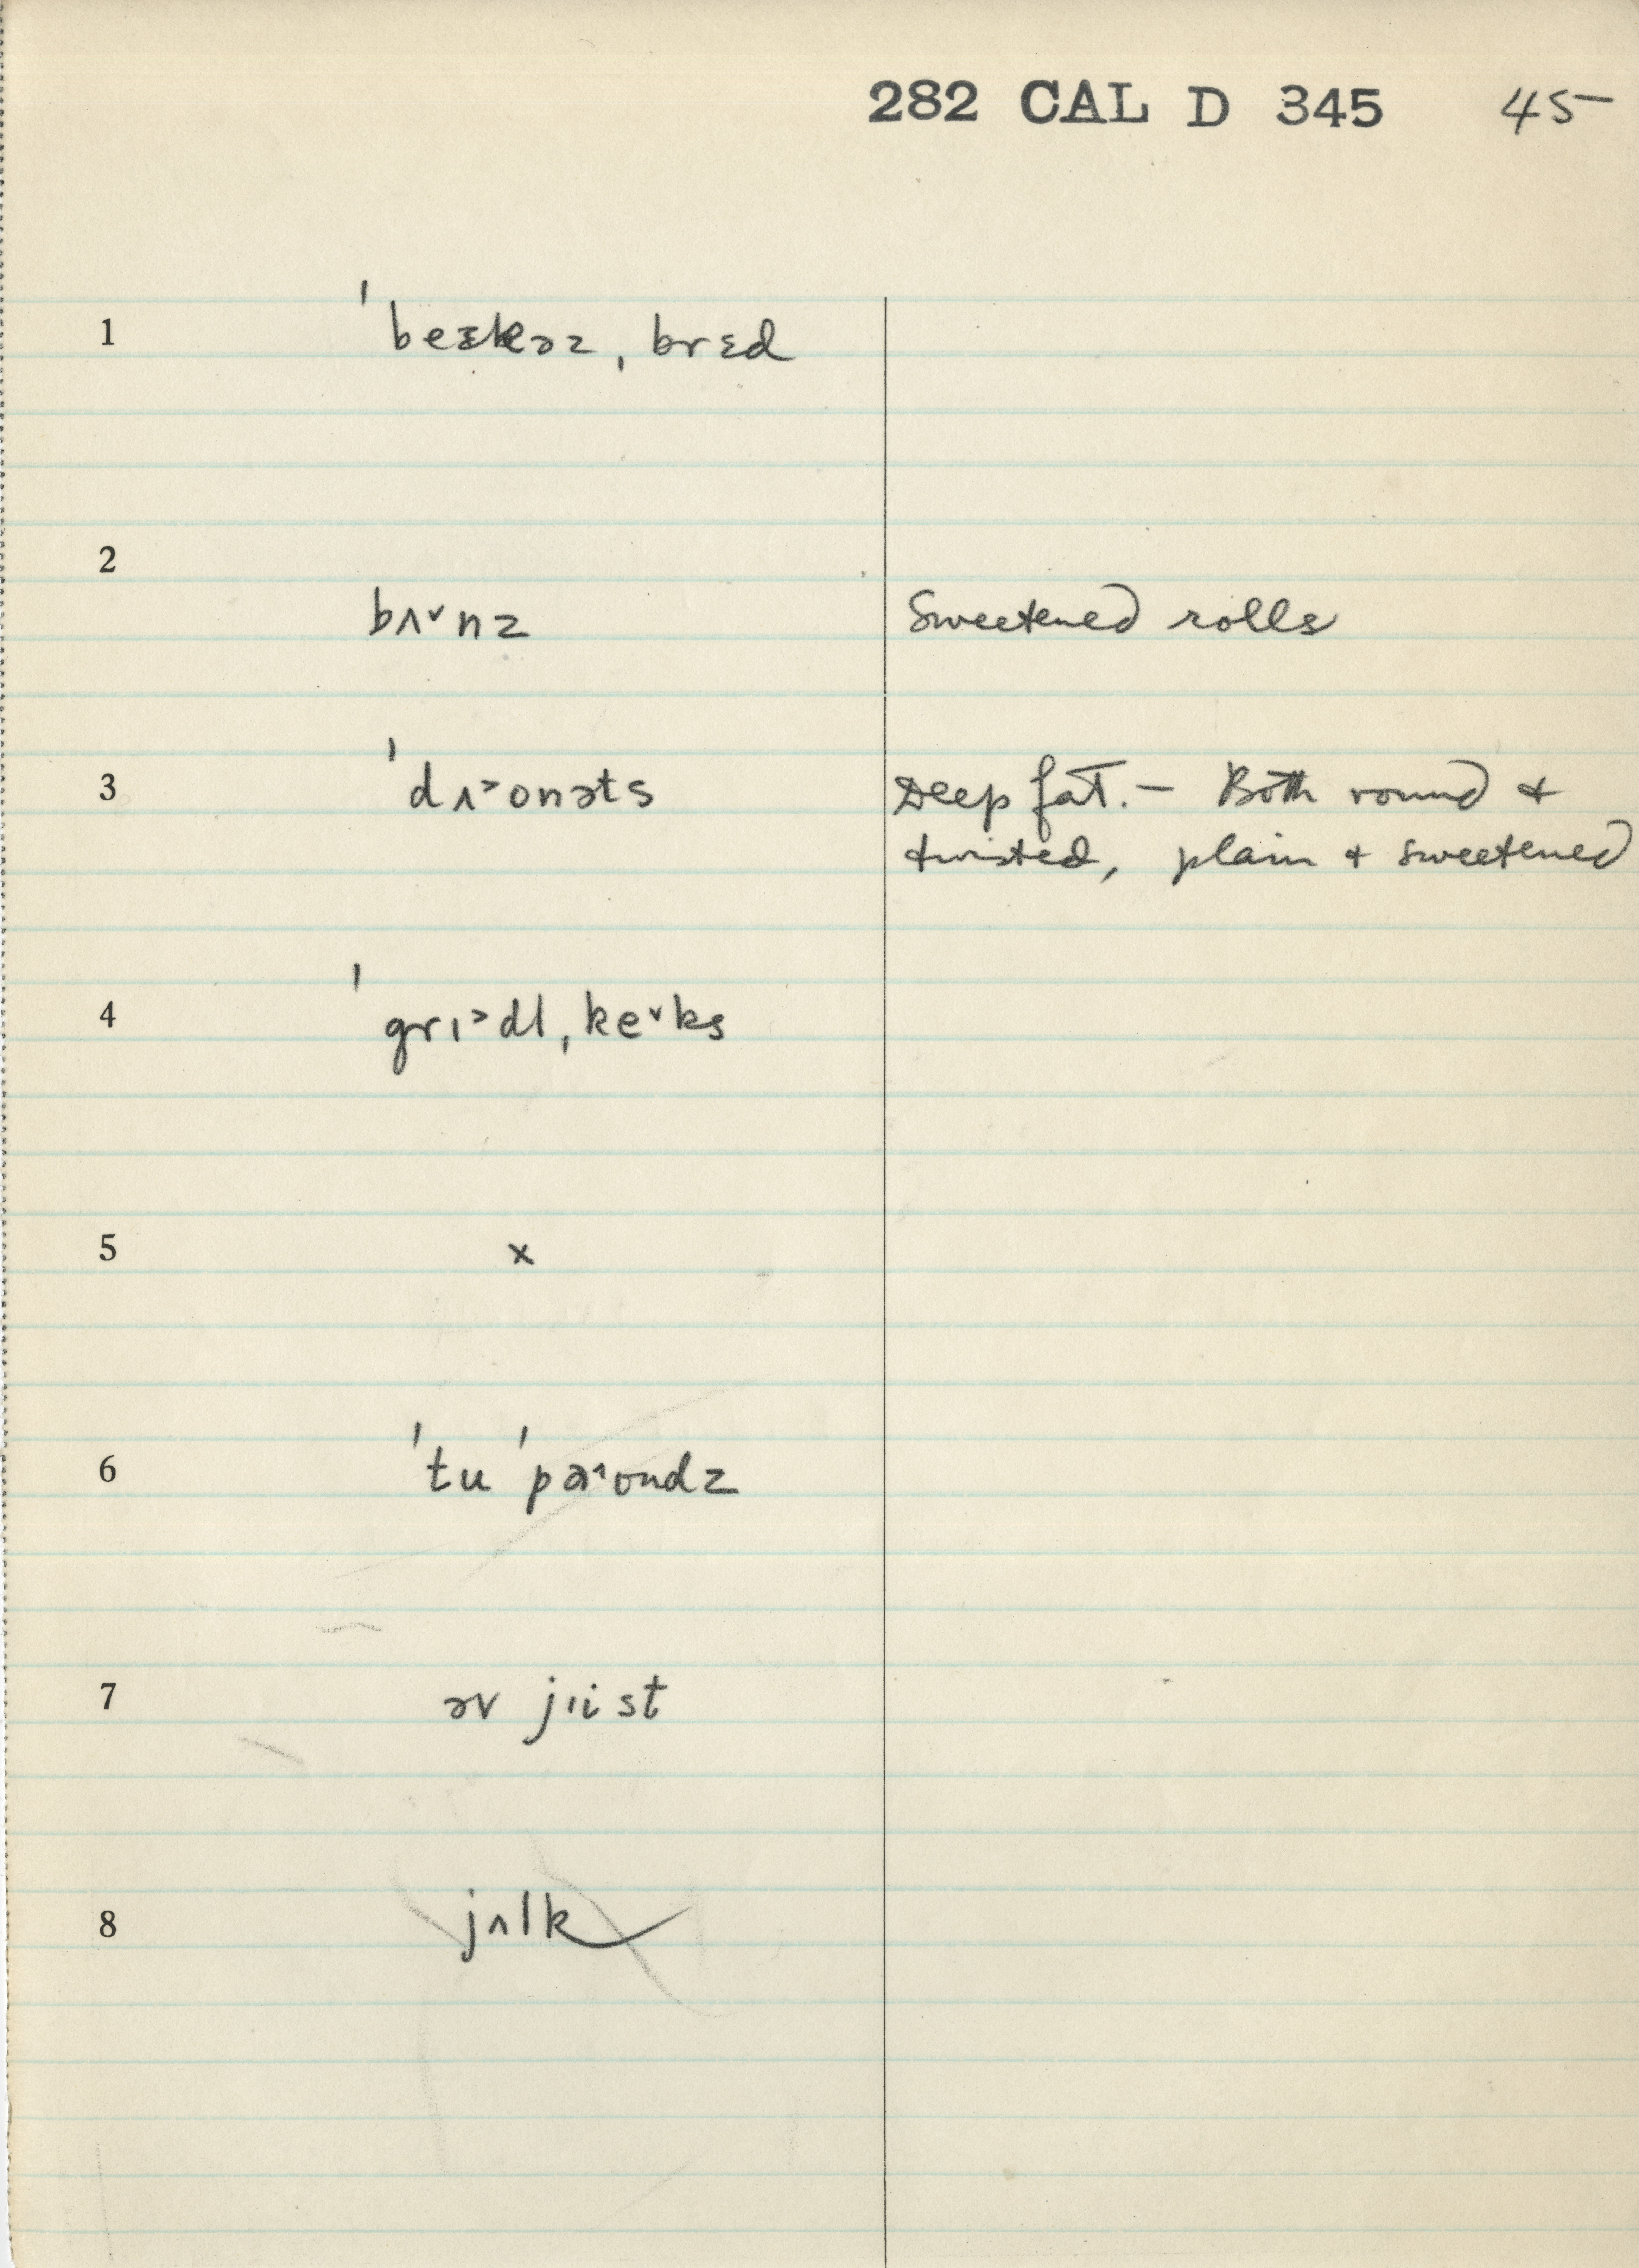 282 CAL D 345 45
1 ˈbeɛkəz ˌbrɛd
2
bʌ˅nz Sweetened rolls
3 ˈdʌ˃onəts Deep fat. – Both round +
twisted, plain + sweetened
4 ˈgrɪ˃dl ˌke˅ks
5 x
6 ˈtu ˈpa˄ʊndz
7 əv jɪist
8 jʌlk